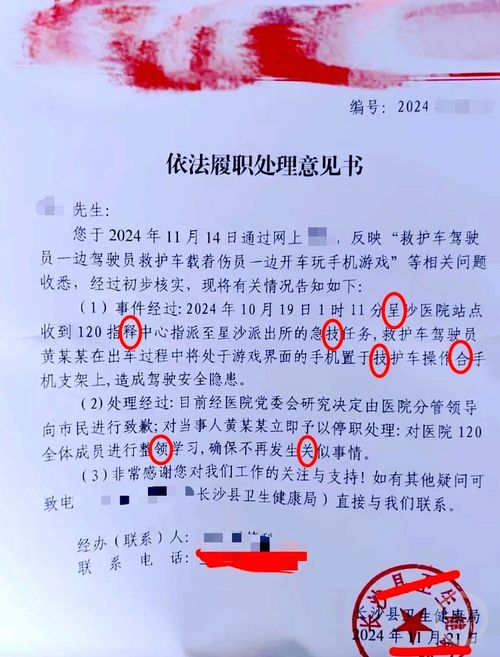 编号：2024
依法履职处理意见书
先生：
您于 2024 年 11 月 14 日通过网上，反映“救护车驾驶
员一边驾驶员救护车载着伤员一边开车玩手机游戏”等相关问题
收悉，经过初步核实，现将有关情况告知如下：
（1）事件经过：2024 年 10 月 19 日 1 时 11 分呈沙医院站点
收到 120 指释中心指派至星沙派出所的急技任务，救护车驾驶员
黄某某在出车过程中将处于游戏界面的手机置于技护车操作合手
机支架上，造成驾驶安全隐患。
（2）处理经过：目前经医院党委会研究决定由医院分管领导
向市民进行致歉；对当事人黄某某立即予以停职处理；对医院 120
全体成员进行整领学习，确保不再发生关似事情。
（3）非常感谢您对我们工作的关注与支持！如有其他疑问可
致电 长沙县卫生健康局）直接与我们联系。
经办（联系）人：
联 系 电 话：
长沙县卫生健康局
长沙县卫生健康局
2024 年 11 月 21 日